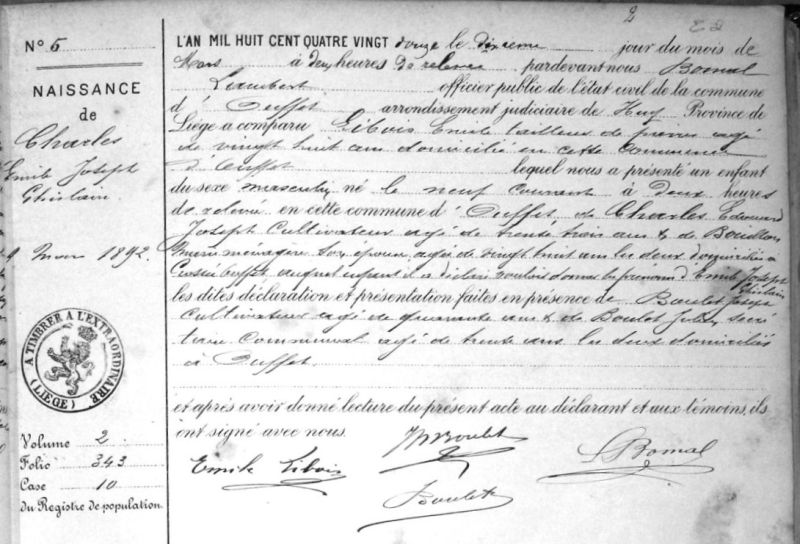 2
Nº 5
NAISSANCE
de
Charles
Emile Joseph
Ghislain
9 Mars 1892.
A TIMBRER A L'EXTRAORDINAIRE
(LIÈGE)
Volume 2
Folio 343
Case 10
du Registre de population.
L'AN MIL HUIT CENT QUATRE VINGT douze le dixième jour du mois de
Mars à deux heures de relevée pardevant nous Bomal
Lambert officier public de l'état civil de la commune
d'Ouffet arrondissement judiciaire de Huy Province de
Liége a comparu Libois Emile tailleur de pierres agé
de vingt huit ans domicilié en cette commune
d'Ouffet lequel nous a présenté un enfant
du sexe masculin né le neuf courant à deux heures
de relevée en cette commune d'Ouffet de Charles Edouard
Joseph Cultivateur agé de trente trois ans & de Bouillon
Marie ménagère son épouse agée de vingt huit ans les deux domiciliés à
Ouffet auquel enfant il a déclaré vouloir donner les prénoms d'Emile Joseph
Ghislain
les dites déclaration et présentation faites en présence de Boulet Joseph
Cultivateur agé de quarante ans & de Boulet Jules secré
taire communal agé de trente ans les deux domiciliés
à Ouffet.
et après avoir donné lecture du présent acte au déclarant et aux témoins, ils
ont signé avec nous.
Boulet
Emile Libois
L Bomal
Boulet